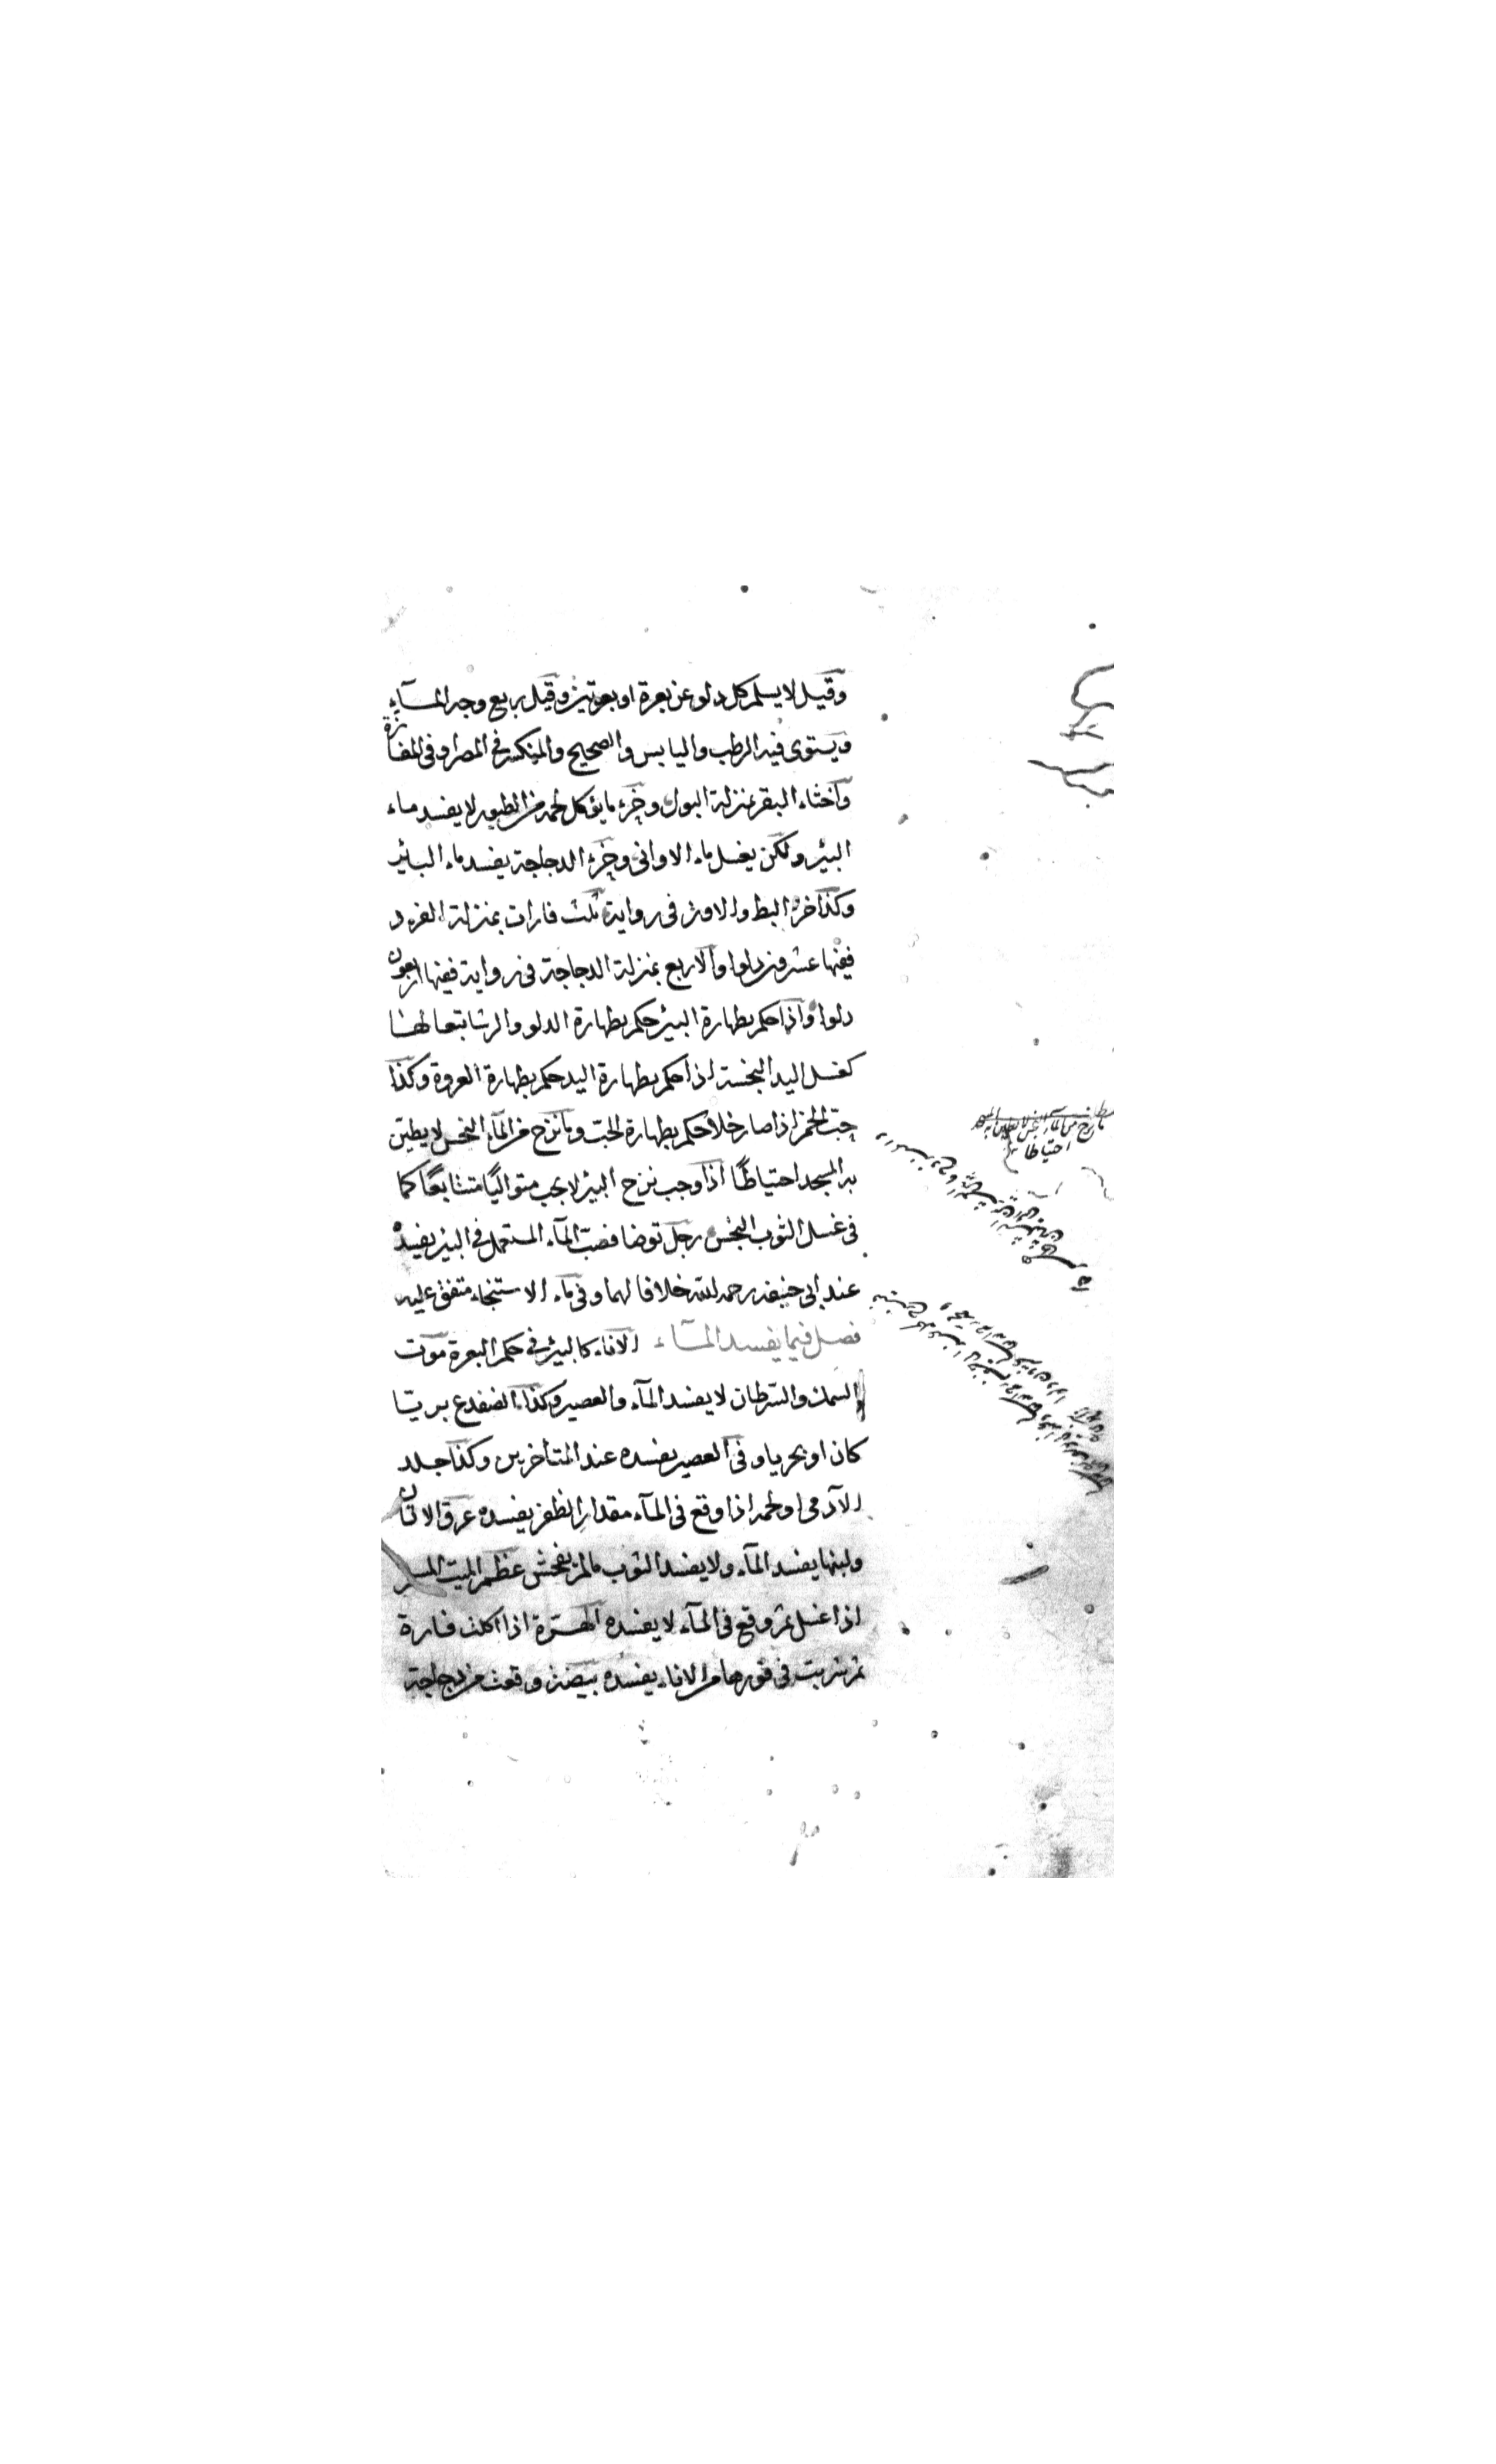 وقيل لا يسلم كل دلو عن بعرة او بعرتين وقيل ربع وجه المآء
ويستوى فيه الرطب واليابس والصحيح والمنكسر في المصر او في المفازة
واخثاء البقر بمنزلة البول وخرء ما يؤكل لحمه من الطيور لا يفسد ماء
البئر ولكن يفسد ماء الاوانى وخرء الدجاجة يفسد ماء البئر
وكذا خرء البط والاوز فى رواية ثلث فارات بمنزلة الفرد
ففيها عشرون دلوا والاربع بمنزلة الدجاجة فى رواية ففيها اربعون
دلوا واذا حكم بطهارة البئر حكم بطهارة الدلو والرشا تبعا لها
كغسل اليد النجسة اذا حكم بطهارة اليد حكم بطهارة العروة وكذا
حب الخمر اذا صار خلا حكم بطهارة الحب وما نزح من المآء النجس لا يطين
به المسجد احتياطًا اذا وجب نزح البئر لا يجب متواليًا متتابعًا كما
فى غسل الثوب النجس رجل توضا فصب المآء المستعمل فى البئر يفسده
عند ابى حنيفة رحمه الله خلافا لهما وفى ماء الاستنجاء متفق عليه
فصل فيما يفسد المآء الاناء كالبئر فى حكم البعرة موت
السمك والسرطان لا يفسد المآء والعصير وكذا الضفدع بريا
كان او بحريا وفى العصير يفسده عند المتأخرين وكذا جلد
الآدمى او لحمه اذا وقع فى المآء مقدار الظفر يفسده عرق الاتان
ولبنها يفسد المآء ولا يفسد الثوب مالم يفحش عظم الميت المسلم
اذا غسل ثم وقع فى المآء لا يفسده الهرة اذا اكلت فارة
ثم شربت فى فورها من الاناء يفسده بيضة وقعت من دجاجة
ما نزح من المآء النجس لا يطين به المسجد
احتياطا